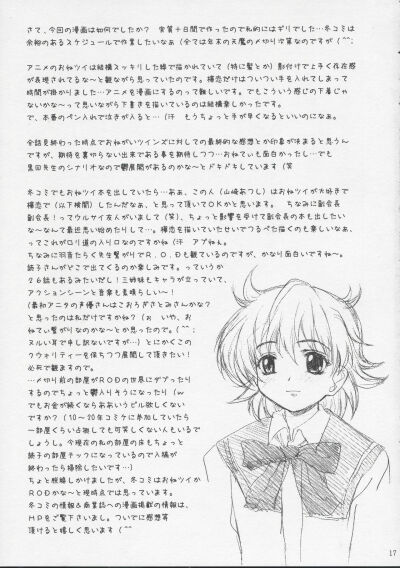 さて、今回の漫画は如何でしたか？ 実質十日間で作ったので私的にはギリでした…冬コミは
余裕のあるスケジュールで作業したいなぁ（全ては年末の天魔の〆切り次第なのですが（^^;
アニメのおねツイは結構スッキリした線で描かれていて（特に髪とか）影付けで上手く存在感
が表現されてるな～と観ながら思っていたのです。樺恋だけはついつい手を入れてしまって
時間が掛かりました…アニメを漫画にするのって難しいです。でもこういう感じの下着じゃ
ないかな～って思いながら下着を描いているのは結構楽しかったです。
で、本番のペン入れで泣きが入ると…（汗 もうちょっと手が早くなるといいのになぁ。
全話見終わった時点でおねがいツインズに対しての最終的な感想とか印象が決まると思うん
ですが、期待を裏切らない出来である事を期待しつつ…おねてぃも面白かったし…でも
黒田先生のシナリオなので鬱展開があるのかな～とドキドキしています（笑
冬コミでもおねツイ本を出していたら…あぁ、この人（山崎あつし）はおねツイが大好きで
樺恋で（以下検閲）したんだなぁ、と思って頂いてOKかと思います。 ちなみに副会長
副会長！ってウルサイ友人がいまして（笑）、ちょっと影響を受けて副会長の本も出したい
な～なんて最近思い始めたりして…。樺恋を描いていたせいでつるぺた描くのも楽しいなぁ、
ってこれがロリ道の入り口なのですかね（汗 アブねぇ。
ちなみに羽音たらく先生繋がりでR．O．Dも観ているのですが、かなり面白いですね～。
読子さんがどこで出てくるのか楽しみです。っていうか
２６話もあるみたいだし！三姉妹もキャラが立っていて、
アクションシーンと音楽も素晴らし～！
（最初アニタの声優さんはこおろぎさとみさんかな？
と思ったのは私だけですかね？（ぉ いや、お
ねてぃ繋がりなのかな～とか思ったので。（^^;
ヌルい耳で申し訳ないですが…）とにかくこの
クウォリティーを保ちつつ展開して頂きたい！
必死で観ますので。
…〆切り前の部屋がRODの世界にダブったり
するのでちょっと鬱入りそうになったり（ｗ
でもお金が続くならああいうビル欲しくない
ですか？（10～20年コミケに参加していたら
一部屋くらい占領しても可笑しくない人もいるで
しょうし。今現在の私の部屋の床もちょっと
読子の部屋チックになっているので入稿が
終わったら掃除したいです…）
ちょっと脱線しかけましたが、冬コミはおねツイか
RODかな～と現時点では思っています。
冬コミの情報＆商業誌への漫画掲載の情報は、
HPをご覧下さいまし。ついでに感想等
頂けると嬉しく思います（^^
17